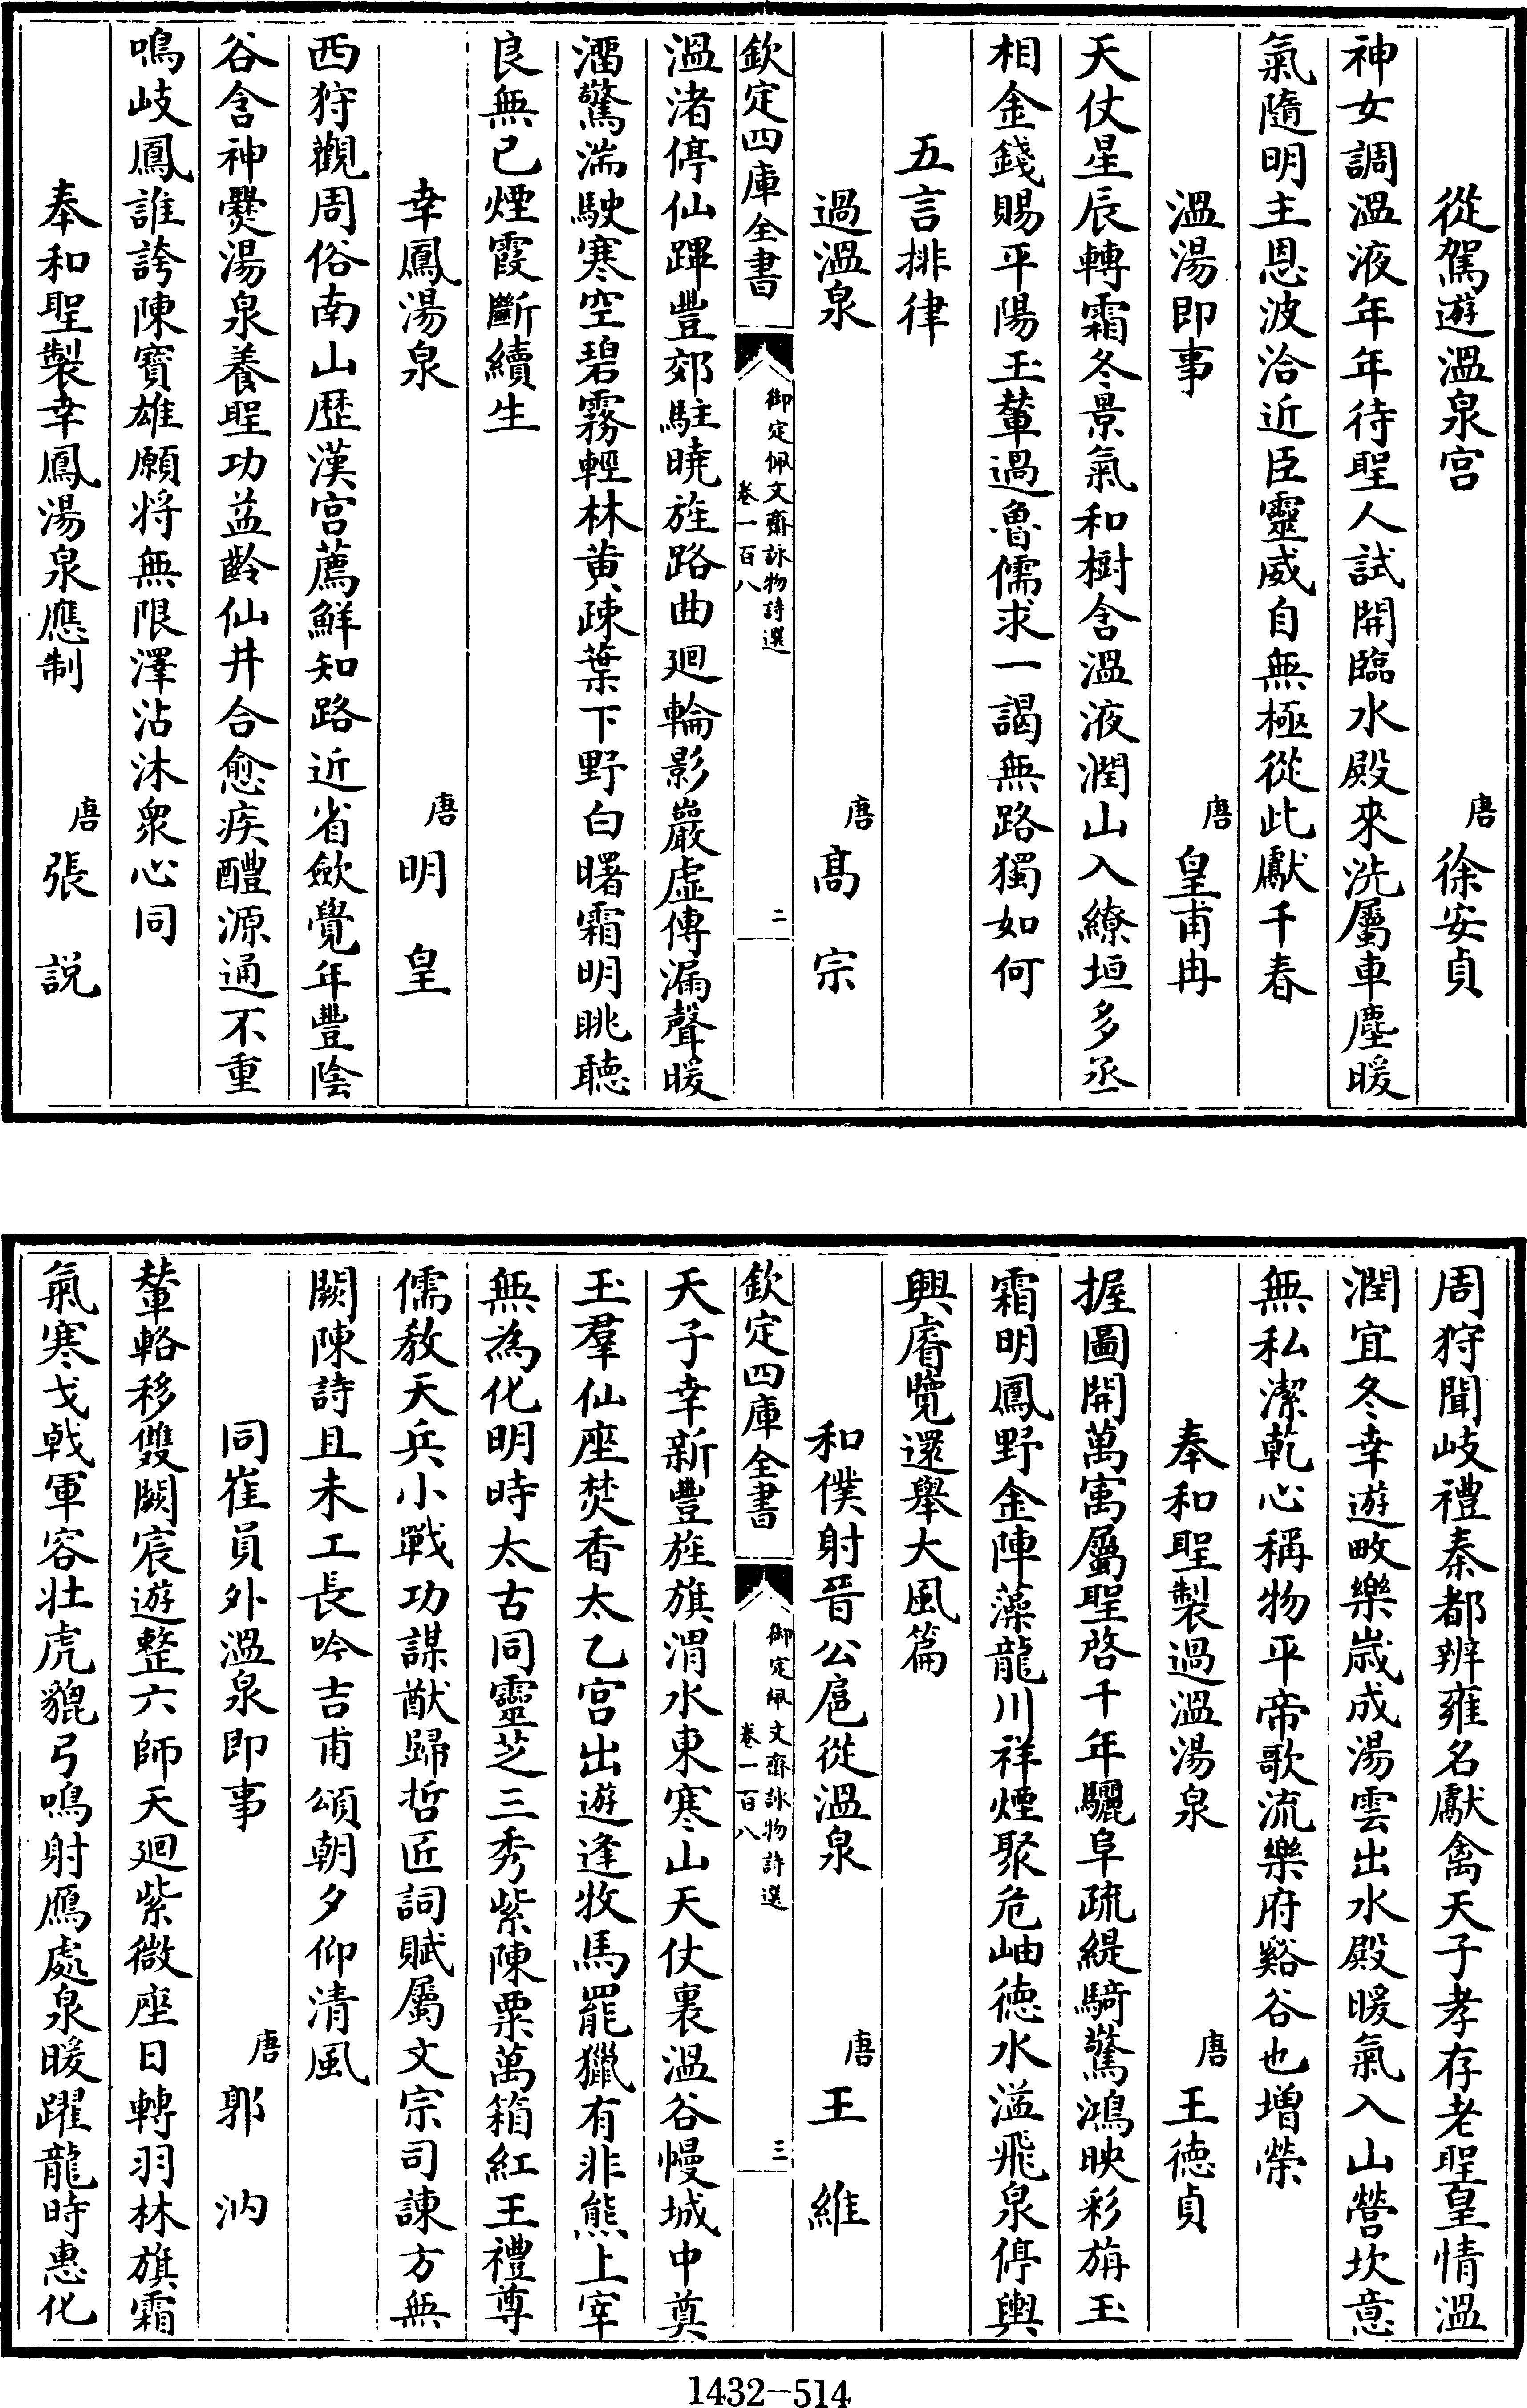 從駕遊溫泉宮 唐 徐安貞
神女調溫液年年待聖人試開臨水殿來洗屬車塵暖
氣隨明主恩波洽近臣靈威自無極從此獻千春
溫湯即事 唐 皇甫冉
天仗星辰轉霜冬景氣和樹含溫液潤山入繚垣多丞
相金錢賜平陽玉輦過魯儒求一謁無路獨如何
五言排律
過溫泉 唐 髙宗
欽定四庫全書 御定佩文齋詠物詩選 卷一百八 二
溫渚停仙蹕豐郊駐曉旌路曲廻輪影巖虛傳漏聲暖
溜驚湍駛寒空碧霧輕林黄疎葉下野白曙霜明眺聽
良無已煙霞斷續生
幸鳳湯泉 唐 明皇
西狩觀周俗南山歴漢宮薦鮮知路近省歛覺年豐陰
谷含神爨湯泉養聖功益齡仙井合愈疾醴源通不重
鳴岐鳳誰誇陳寶雄願將無限澤沾沐衆心同
奉和聖製幸鳳湯泉應制 唐 張說
周狩聞岐禮秦都辨雍名獻禽天子孝存老聖皇情溫
潤宜冬幸遊畋樂歲成湯雲出水殿暖氣入山營坎意
無私潔乾心稱物平帝歌流樂府谿谷也增榮
奉和聖製過溫湯泉 唐 王德貞
握圖開萬㝢屬聖啓千年驪阜疏緹騎驚鴻映彩旃玉
霜明鳳野金陣藻龍川祥煙聚危岫德水溢飛泉停輿
興睿覽還舉大風篇
和僕射晉公扈從溫泉 唐 王維
欽定四庫全書 御定佩文齋詠物詩選 卷一百八 三
天子幸新豐旌旗渭水東寒山天仗裏溫谷幔城中奠
玉羣仙座焚香太乙宮出遊逢牧馬罷獵有非熊上宰
無為化明時太古同靈芝三秀紫陳粟萬箱紅王禮尊
儒教天兵小戰功謀猷歸哲匠詞賦屬文宗司諫方無
闕陳詩且未工長吟吉甫頌朝夕仰清風
同崔員外溫泉即事 唐 郭汭
輦輅移雙闕宸遊整六師天廻紫微座日轉羽林旗霜
氣寒戈㦸軍容壯虎貔弓鳴射鴈處泉暖躍龍時惠化
1432-514